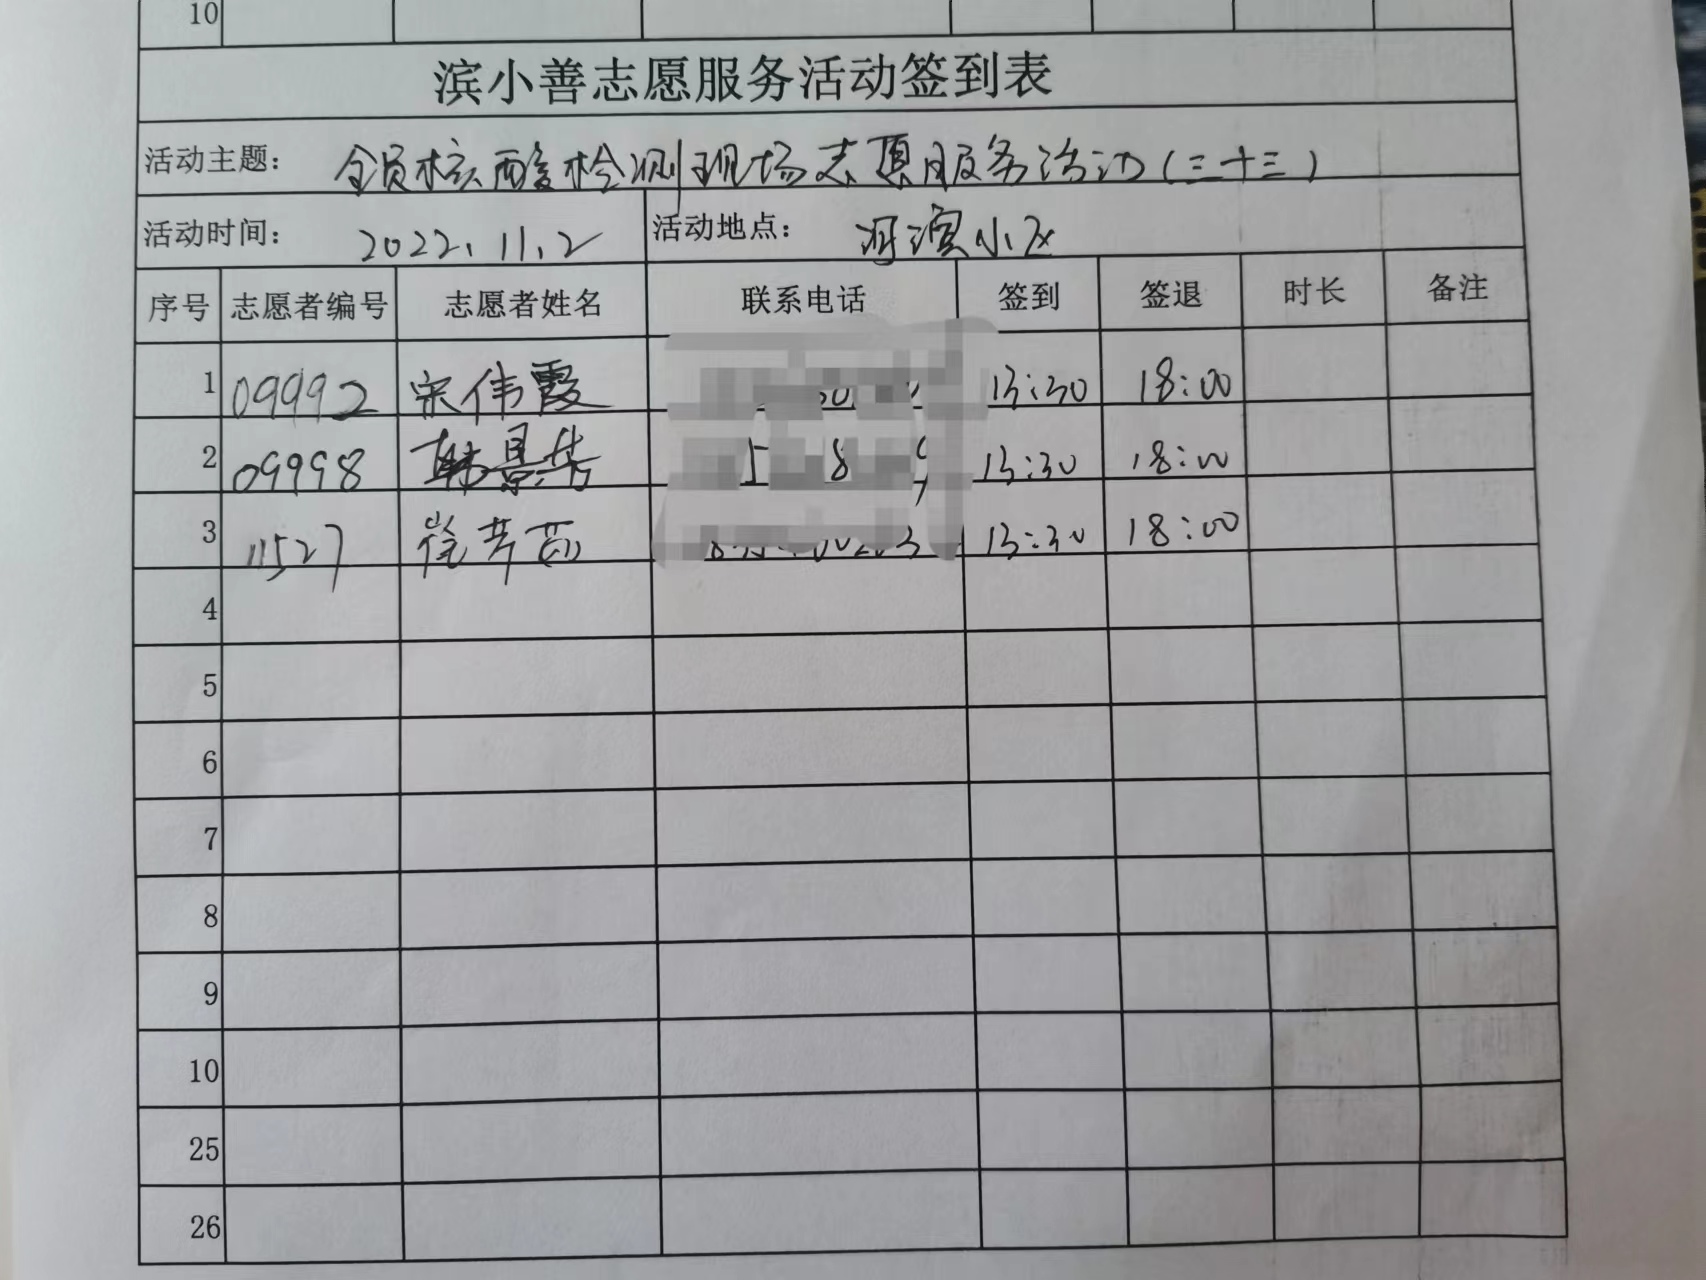 10
滨小善志愿服务活动签到表
活动主题： 全员核酸检测现场志愿服务活动(三十三)
活动时间： 2022.11.2 活动地点： 河滨小区
序号 志愿者编号 志愿者姓名 联系电话 签到 签退 时长 备注
1 09992 宋伟霞 13:30 18:00
2 09998 韩景华 13:30 18:00
3 11527 13:30 18:00
4
5
6
7
8
9
10
25
26